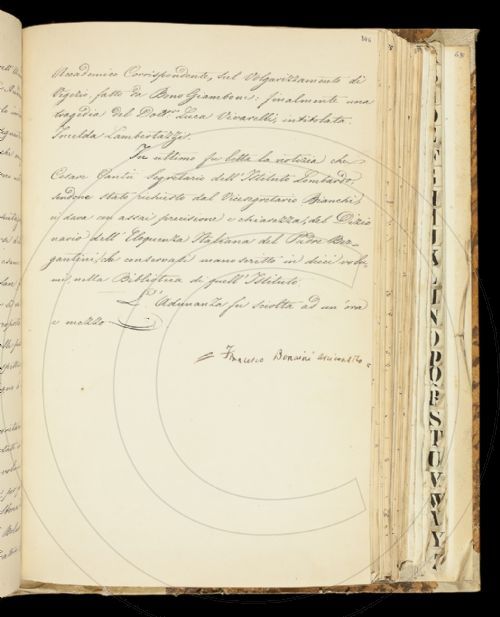 Accademico Corrispondente, sul Volgarizzamento di
Vegezio, fatto da Bono Giamboni: finalmente una
tragedia del Dott. Luca Vivarelli, intitolata
Imelda Lambertazzi.
In ultimo fu letta la notizia che
Cesare Cantù Segretario dell'Istituto Lombardo,
essendone stato richiesto dal Vicesegretario Bianchi,
ci dava con assai precisione e chiarezza, del Dizio
nario dell'Eloquenza Italiana del Padre Ber-
gantini, che conservasi manoscritto in dieci volu-
mi, nella Biblioteca di quell'Istituto.
L'Adunanza fu sciolta ad un'ora
e mezzo
= Francesco Bonaini
L
K
N
O
P
Q
R
S
T
U
V
W
Y